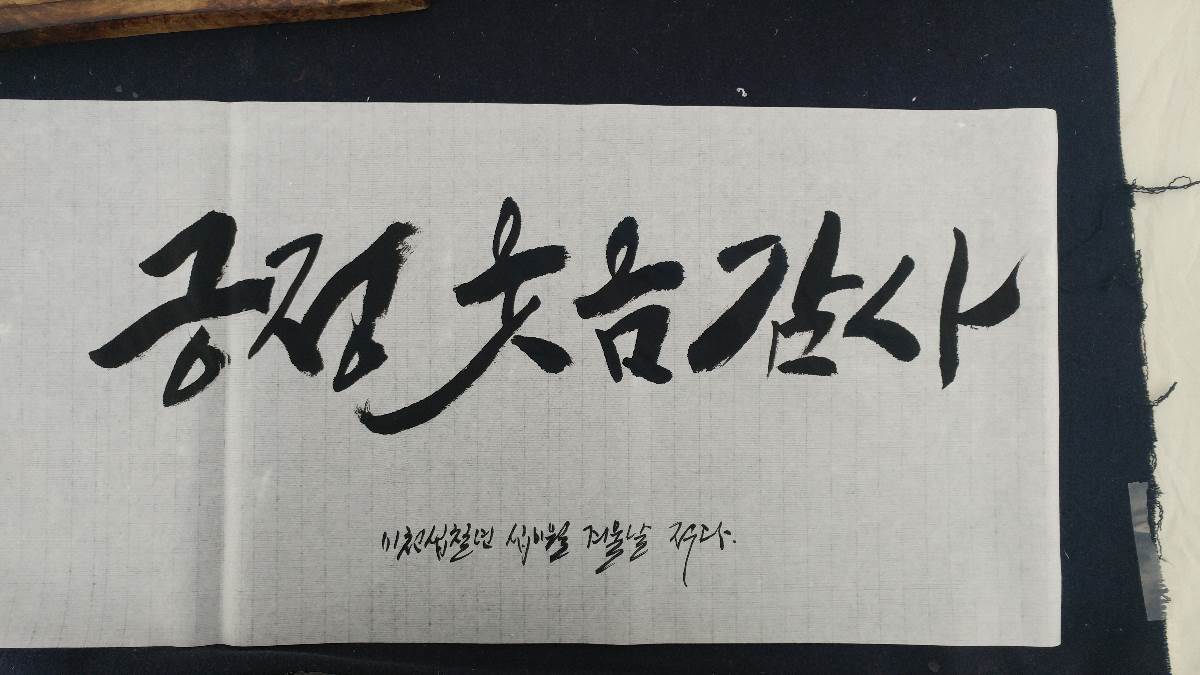 긍정 웃음 감사
이천십칠년 십이월 저물날 적다.